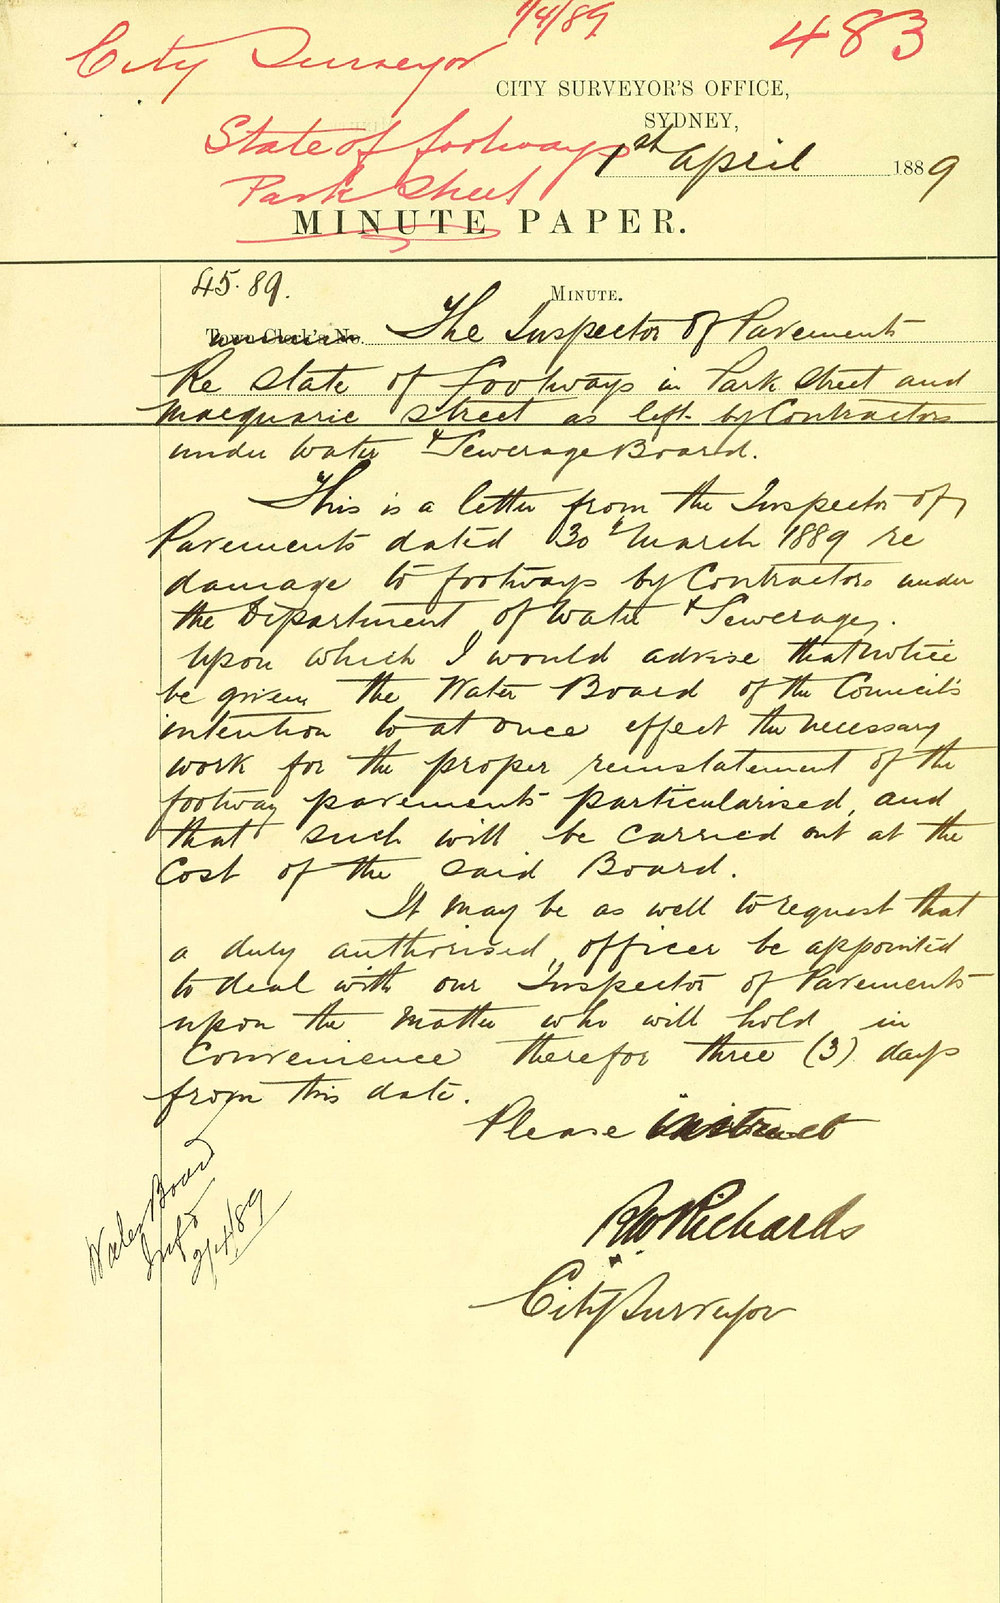 1/4/89
483
City Surveyor
CITY SURVEYOR'S OFFICE,
SYDNEY,
State of footways
1st April 1889
Park Street
MINUTE PAPER.
45.89.
MINUTE.
Town Clerk's No.
The Inspector of Pavements
Re state of footways in Park Street and
Macquarie Street as left by Contractors
under Water & Sewerage Board.
This is a letter from the Inspector of
Pavements dated 30th March 1889 re
damage to footways by Contractors under
the Department of Water & Sewerage.
Upon which I would advise that notice
be given the Water Board of the Council's
intention to at once effect the necessary
work for the proper reinstatement of the
footway pavements particularised, and
that such will be carried out at the
Cost of the said Board.
It may be as well to request that
a duly authorised officer be appointed
to deal with our Inspector of Pavements
upon the Matter who will hold in
Convenience therefor three (3) days
from this date.
Please instruct
RW Richards
City Surveyor
Water Board
Infd
2/4/89